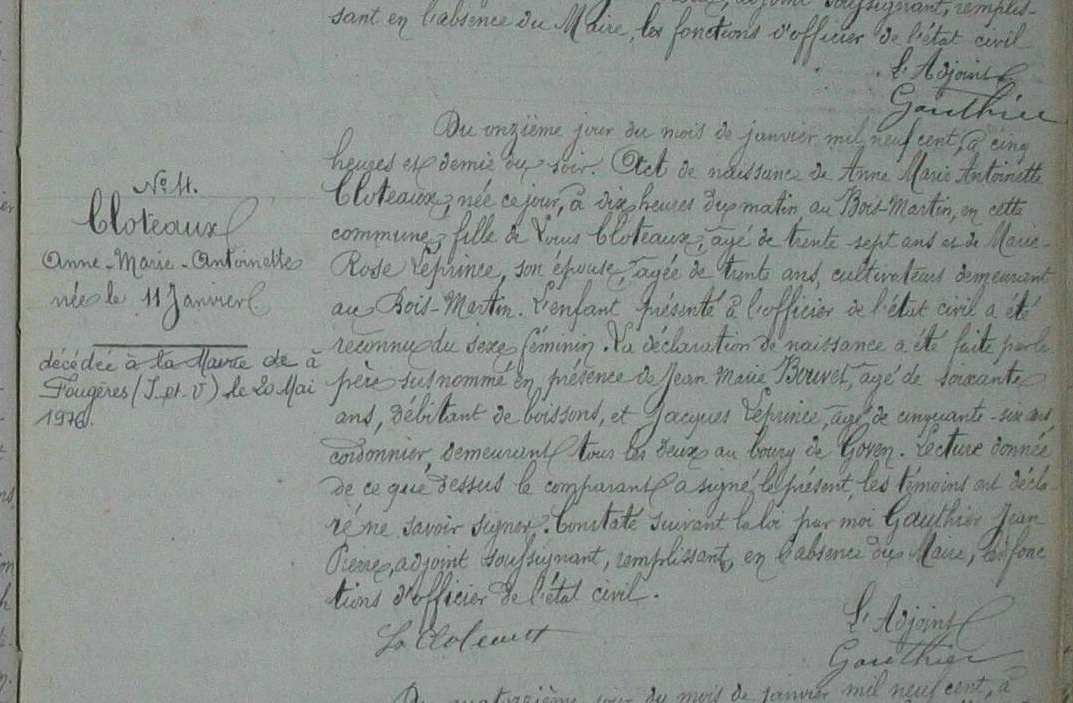 adjoint soussignant, remplis-
sant en l'absence du Maire, les fonctions d'officier de l'état civil
L'Adjoint
Gauthier
Du onzième jour du mois de janvier mil neuf cent, à cinq
heures et demie du soir. Act de naissance de Anne Marie Antoinette
Cloteaux, née ce jour, à dix heures du matin, au Bois-Martin, en cette
commune, fille de Louis Cloteaux, agé de trente-sept ans et de Marie-
Rose Leprince, son épouse, agée de trente ans, cultivateurs demeurant
au Bois-Martin. L'enfant présenté à l'officier de l'état civil a été
reconnu du sexe féminin. La déclaration de naissance a été faite par le
père susnommé en présence de Jean Marie Bouvet, agé de soixante
ans, débitant de boissons, et Jacques Leprince, agé de cinquante-six ans,
cordonnier, demeurant tous les deux au bourg de Goven. Lecture donnée
de ce que dessus le comparant a signé le présent, les témoins ont décla-
ré ne savoir signer. Constaté suivant la loi par moi Gauthier Jean
Pierre, adjoint soussignant, remplissant, en l'absence du Maire, les fonc
tions d'officier de l'état civil.
L'Adjoint
Gauthier
Du quatorzième jour du mois de janvier mil neuf cent, à
No 4.
Cloteaux
Anne-Marie-Antoinette
née le 11 Janvier
décédée à la Mairie de à
Fougères (I. et V) le 20 Mai